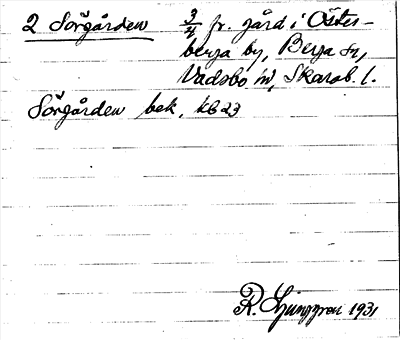 2 Sörgården 3/4 fr. gård i Öster-
berga by, Berga sn,
Vadsbo hd, Skarab. l.
Sörgården bek. KB 23
R. Ljunggren 1931